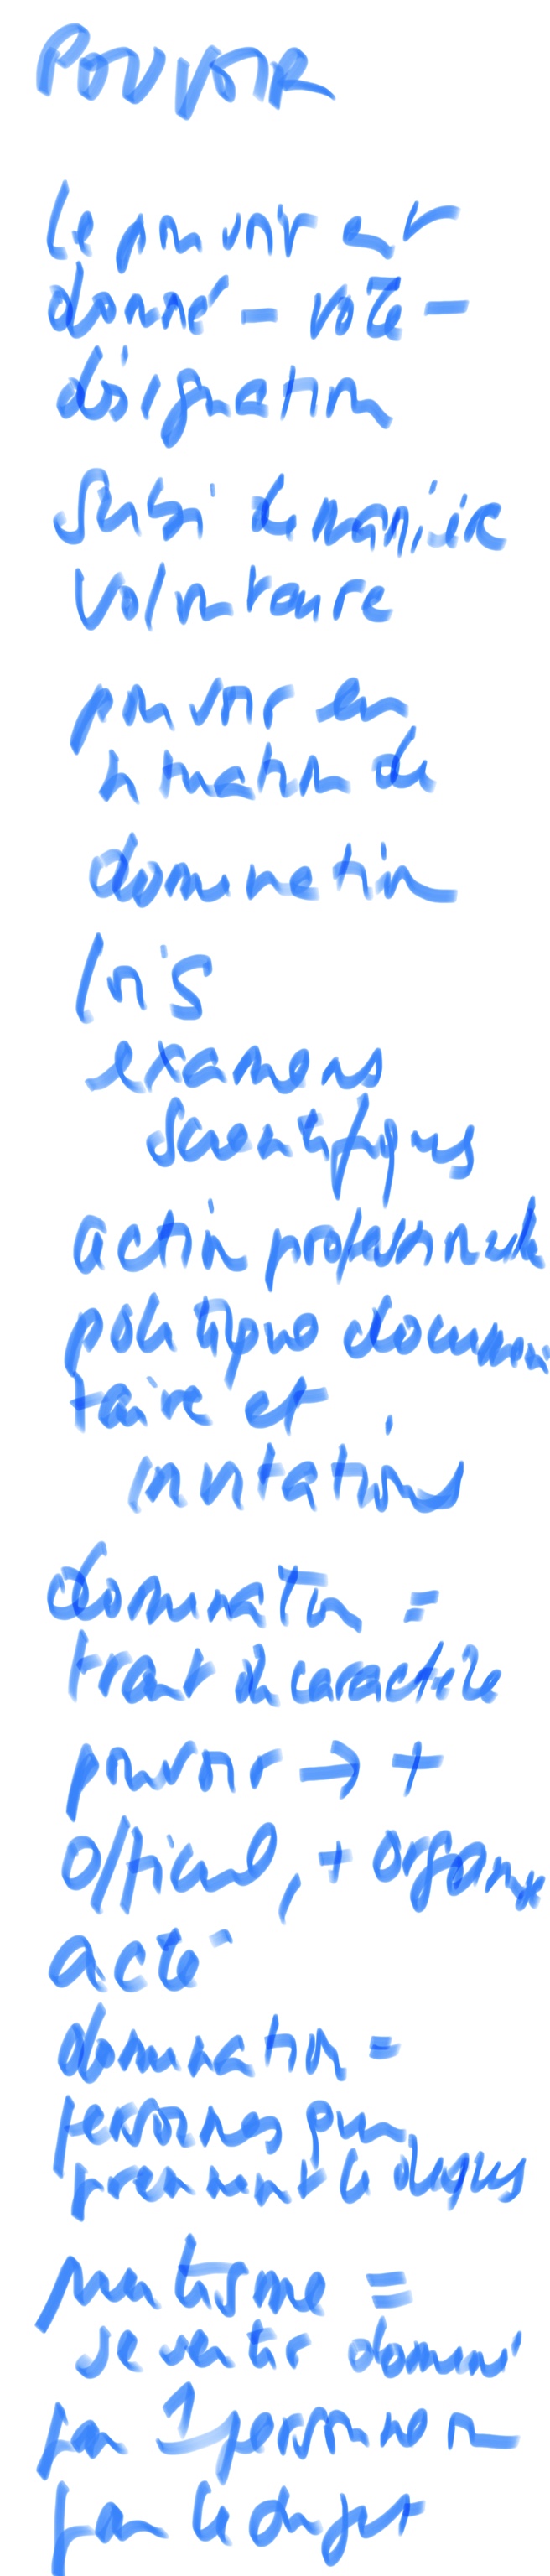 POUVOIR
Le pouvoir est
donné - vote -
désignation
Subi de manière
volontaire
pouvoir en
situation de
domination
lois
examens
scientifiques
action professionnelle
politique documen
taire et
invitations
domination =
trait de caractère
pouvoir → +
officiel, + organisé
acté
domination =
personnes qui
prennent le dessus
mutisme =
se sentir dominé
par 1 personne
par le